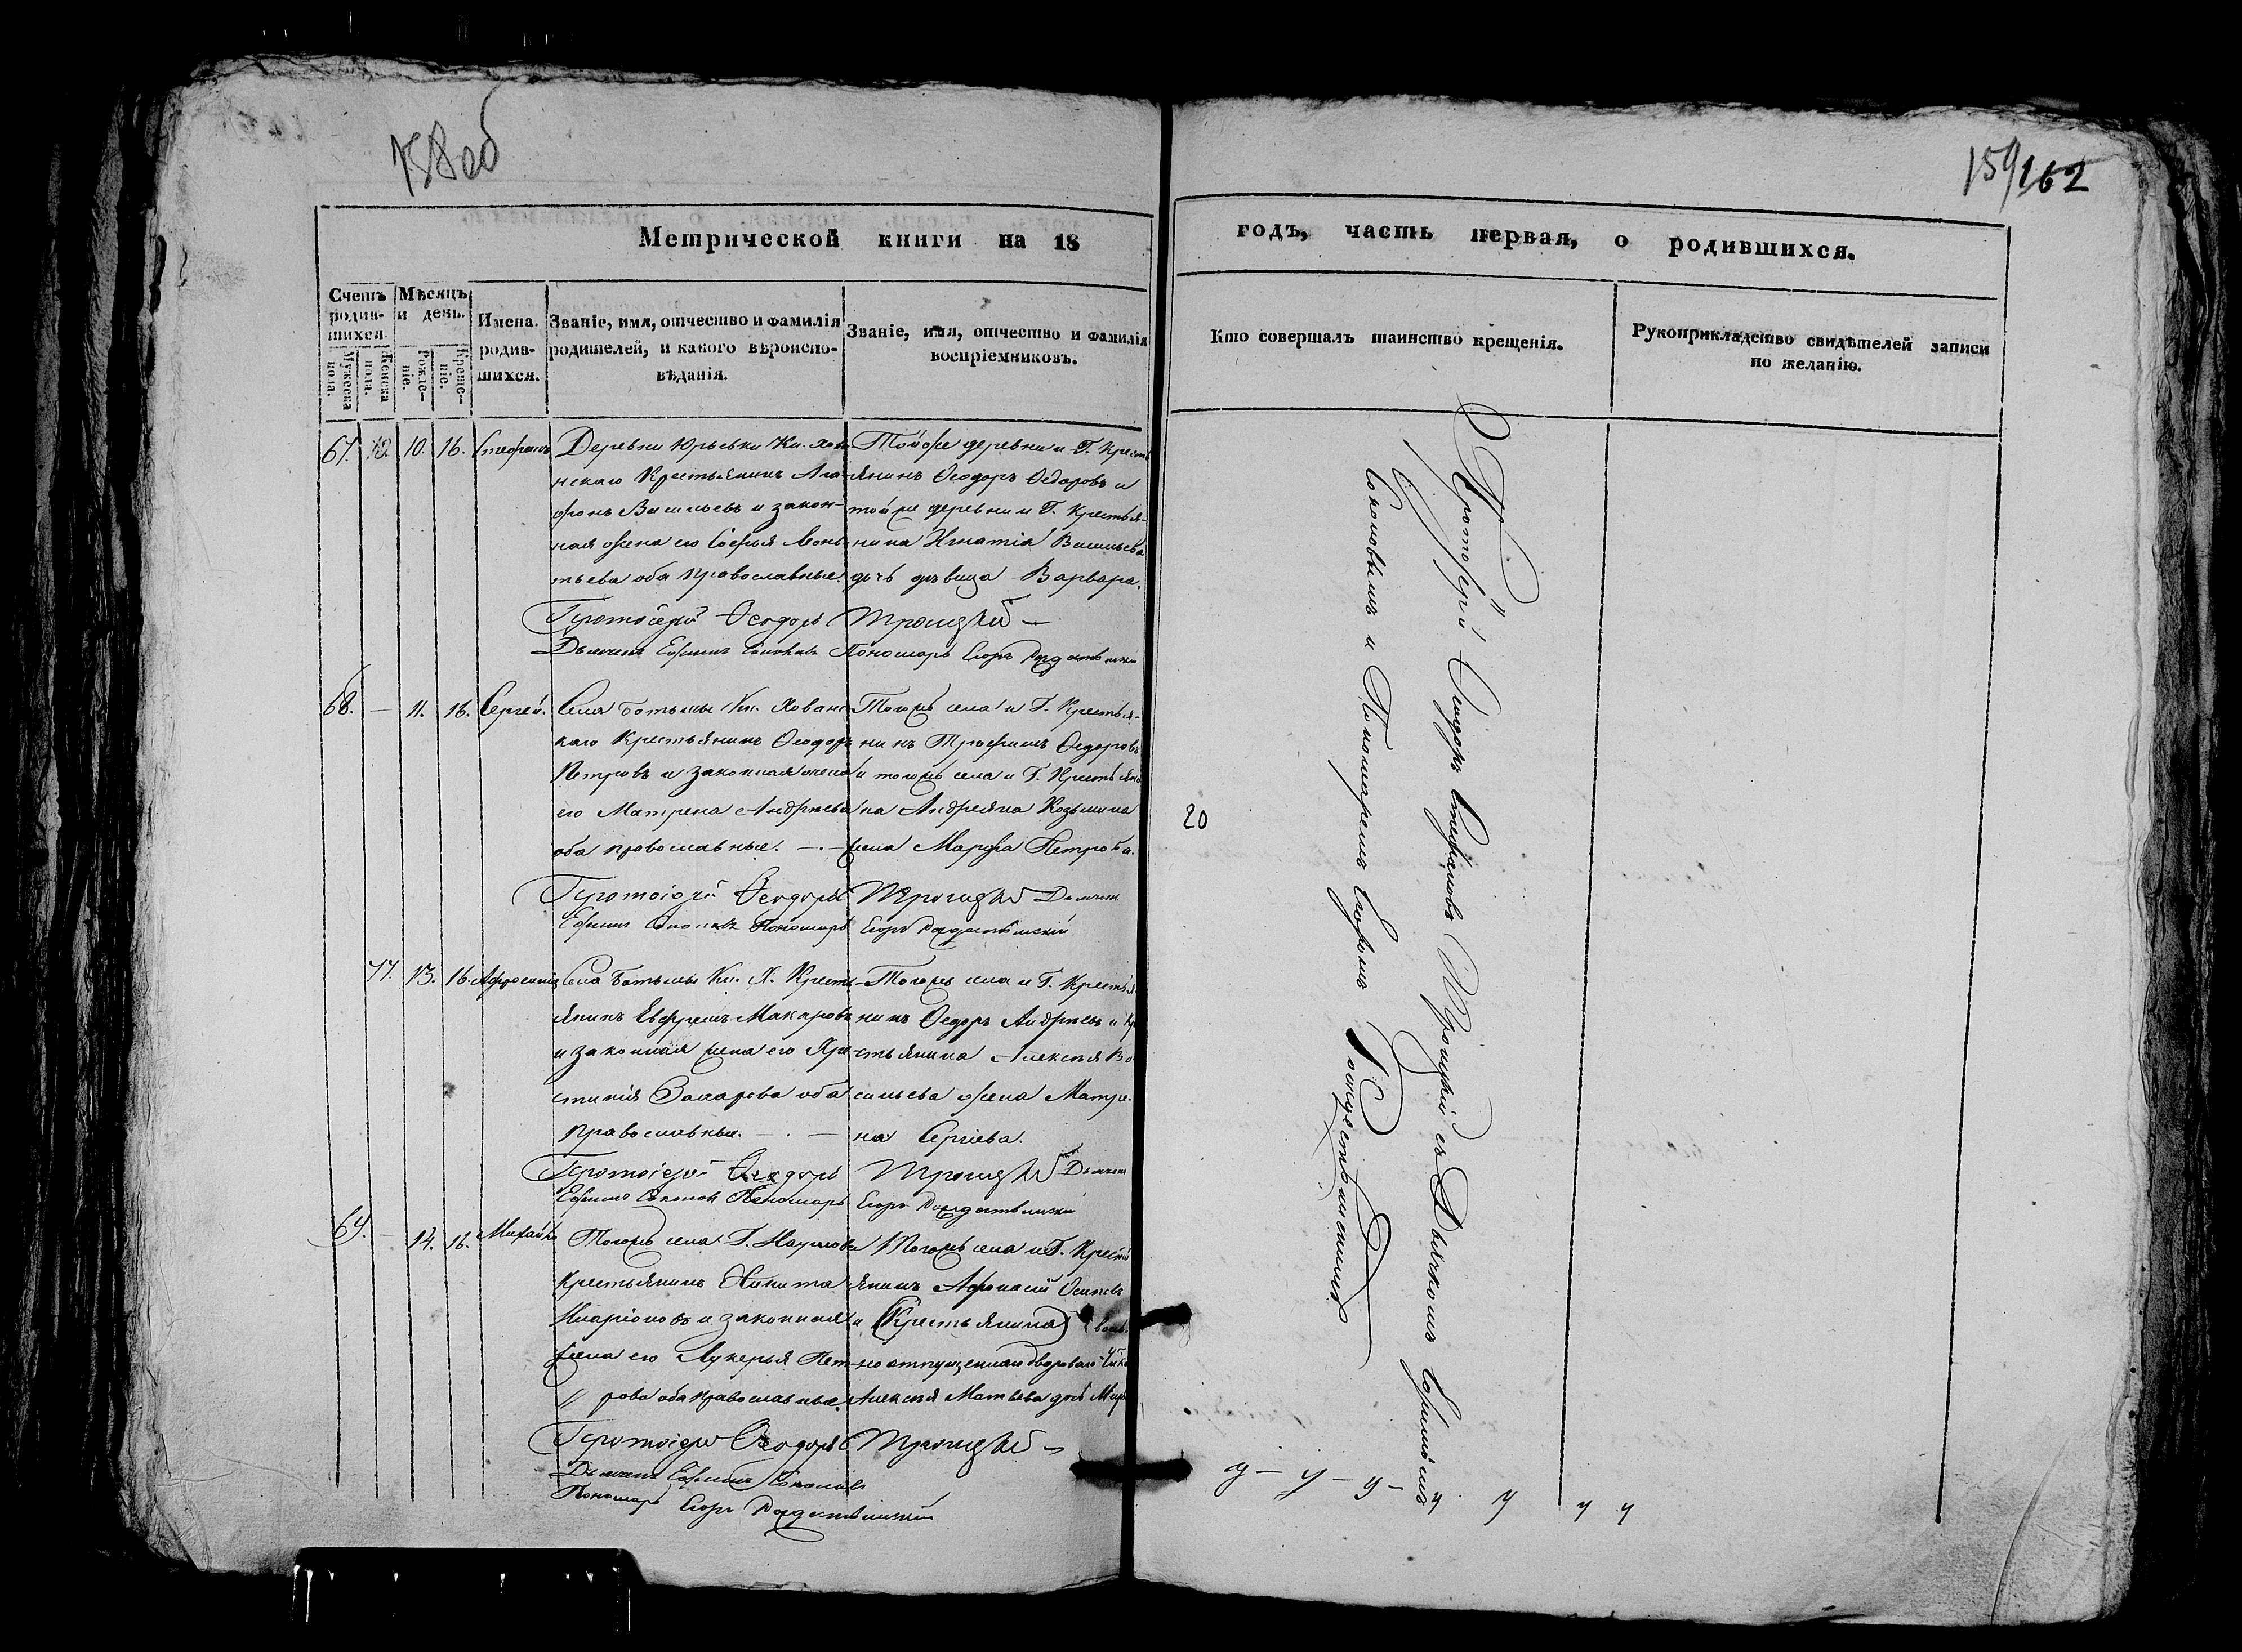 158 об
159/162
Метрической книги на 18
годъ, часть первая, о родившихся.
Счетъ родив-шихся.
Мужеска пола.
Женска пола.
Мѣсяцъ и день.
Рожде-ніе.
Креще-ніе.
Имена родив-шихся.
Званіе, имя, отчество и фамилія
родителей, и какого вѣроиспо-
вѣданія.
Званіе, имя, отчество и фамилія
воспріемниковъ.
Кто совершалъ таинство крещенія.
Рукоприкладство свидѣтелей записи
по желанію.
67. 10. 16. Стефанъ
Деревни Юрьевки Кн. Хова-
нскаго Крестьянинъ Ага-
фонъ Васильевъ и закон-
ная жена его Софья Леонь-
тьева оба православные.
Тойже деревни и Г. Кресть
янинъ Ѳеодоръ Ѳедоровъ и
тойже деревни и Г. Крестья-
нина Игнатія Васильева
дочь дѣвица Варвара.
Протоіерей Ѳеодоръ Троицкій
Дьячекъ Ефимъ Соколовъ Пономарь Егоръ Рождественскій
68. — 11. 16. Сергей.
Села Ботьмы Кн. Хованс
каго Крестьянинъ Ѳеодоръ
Петровъ и законная жена
его Матрена Андрѣева
оба православные. —.—
Тогожъ села и Г. Крестья-
нинъ Трофимъ Ѳедоровъ
и тогожъ села и Г. Крестьяни
на Андреяна Козьмина
жена Марфа Петрова.
Протоіерей Ѳеодоръ Троицкій Дьячекъ
Ефимъ Соколовъ Пономарь Егоръ Рождественскій
77. 13. 16. Афросинія
Села Ботьмы Кн. Х. Кресть-
янинъ Евфремъ Макаровъ
и законная жена его Хри-
стинія Захарова оба
православные. —.—
Тогожъ села и Г. Крестья
нинъ Ѳедоръ Андрѣевъ и Кр
стьянина Алексѣя Ва
сильева жена Матре-
на Сергіева.
Протоіерей Ѳеодоръ Троицкій Дьячекъ
Ефимъ Соколовъ Пономарь Егоръ Рождественскій
69. — 14. 16. Михайло
Тогожъ села Г. Наумова
Крестьянинъ Никита
Иларіоновъ и законная
жена его Лукерья Пет-
рова оба православные.
Тогожъ села и Г. Кресть
янинъ Афонасій Осиповъ
и (Крестьянина)
но отпущеннаго двороваго
Алексѣя Матвѣева дочь
Протоіерей Ѳеодоръ Троицкій
Дьячекъ Ефимъ Соколовъ
Пономарь Егоръ Рождественскій
20
Протоіерей Ѳеодоръ Стефановъ Троицкій съ Дьячкомъ Ефимомъ
Соколовымъ и Пономаремъ Егоромъ Рождественскимъ